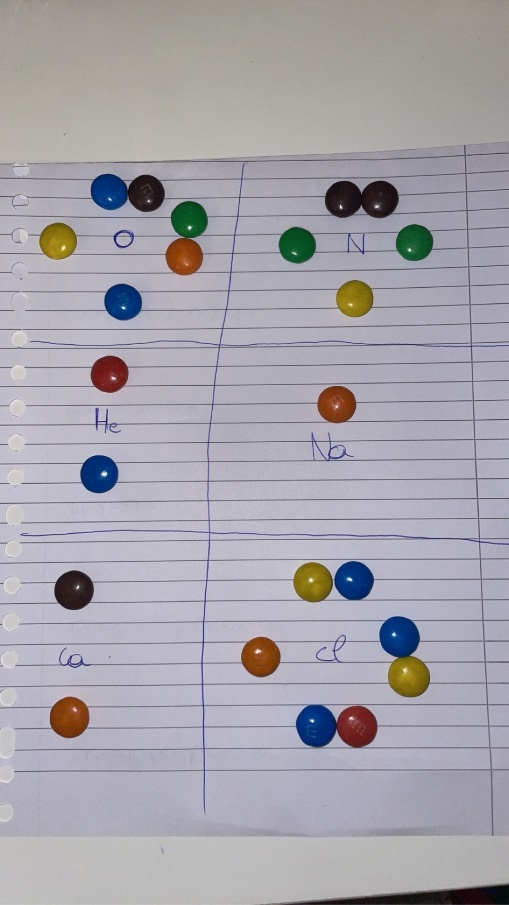 O
N
He
Na
Ca
Cl